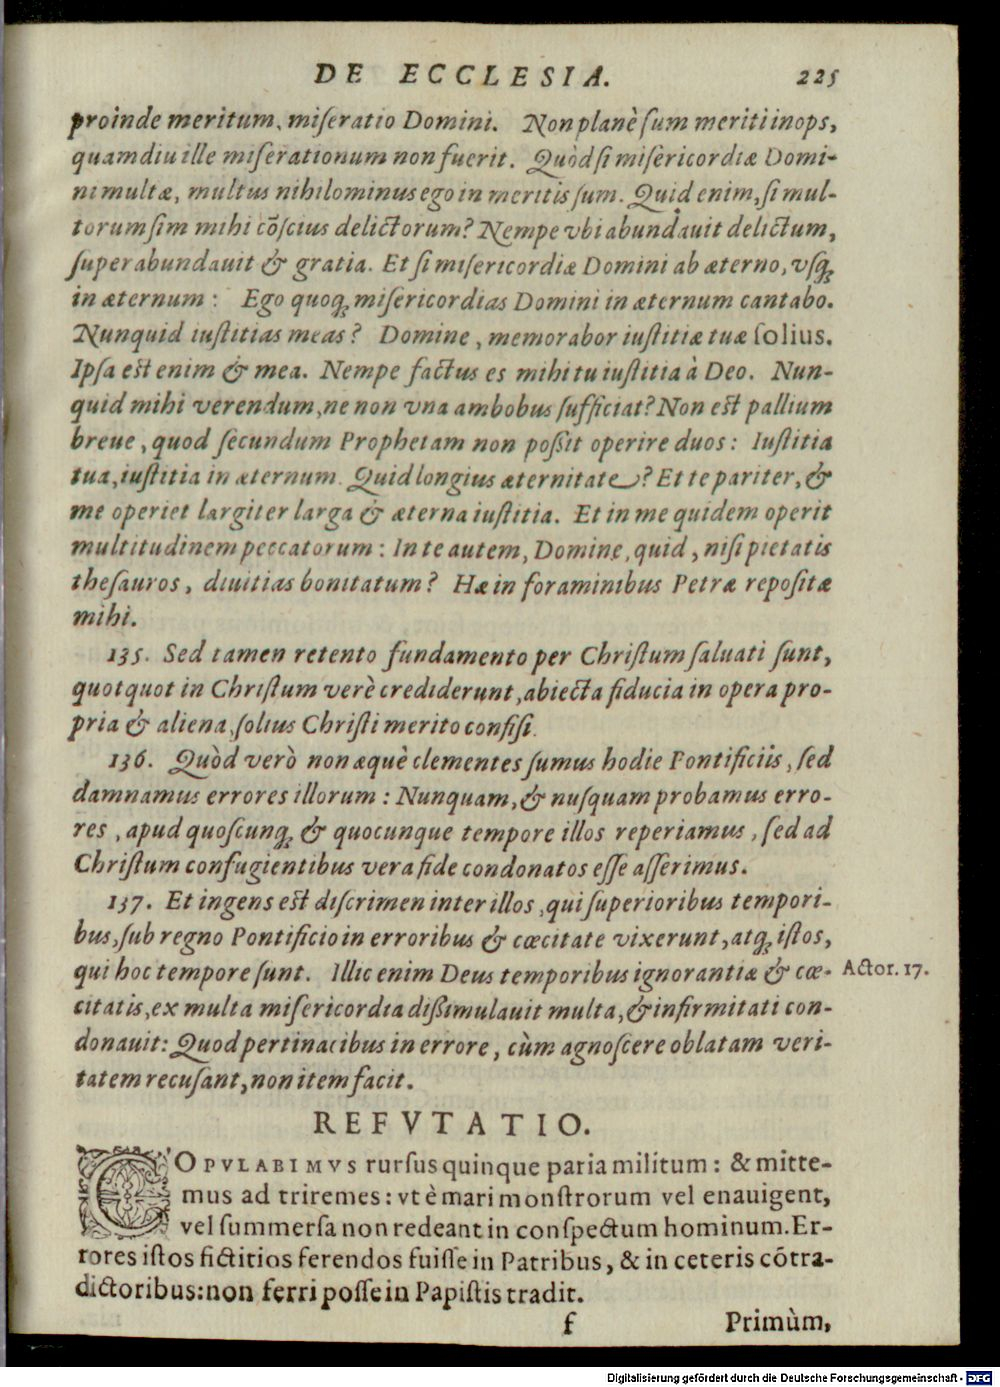 DE ECCLESIA. 225
proinde meritum, miſeratio Domini. Non planè ſum meriti inops,
quamdiu ille miſerationum non fuerit. Quòd ſi miſericordiæ Domi-
ni multæ, multus nihilominus ego in meritis ſum. Quid enim, ſi mul-
torum ſim mihi cõſcius delictorum? Nempe vbi abundauit delictum,
ſuperabundauit & gratia. Et ſi miſericordiæ Domini ab æterno, vſq́;
in æternum: Ego quoq́; miſericordias Domini in æternum cantabo.
Nunquid iuſtitias meas? Domine, memorabor iuſtitiæ tuæ ſolius.
Ipſa eſt enim & mea. Nempe factus es mihi tu iuſtitia à Deo. Nun-
quid mihi verendum, ne non vna ambobus ſufficiat? Non eſt pallium
breue, quod ſecundum Prophetam non poßit operire duos: Iuſtitia
tua, iuſtitia in æternum. Quid longius æternitate? Et te pariter, &
me operiet largiter larga & æterna iuſtitia. Et in me quidem operit
multitudinem peccatorum: In te autem, Domine, quid, niſi pietatis
theſauros, diuitias bonitatum? Hæ in foraminibus Petræ repoſitæ
mihi.
135. Sed tamen retento fundamento per Chriſtum ſaluati ſunt,
quotquot in Chriſtum verè crediderunt, abiecta fiducia in opera pro-
pria & aliena, ſolius Chriſti merito confiſi.
136. Quòd verò non æquè clementes ſumus hodie Pontificiis, ſed
damnamus errores illorum: Nunquam, & nuſquam probamus erro-
res, apud quoſcunq́; & quocunque tempore illos reperiamus, ſed ad
Chriſtum confugientibus vera fide condonatos eſſe aſſerimus.
137. Et ingens eſt diſcrimen inter illos, qui ſuperioribus tempori-
bus, ſub regno Pontificio in erroribus & cœcitate vixerunt, atq́; iſtos,
qui hoc tempore ſunt. Illic enim Deus temporibus ignorantiæ & cœ- Actor. 17.
citatis, ex multa miſericordia dißimulauit multa, & infirmitati con-
donauit: Quod pertinacibus in errore, cùm agnoſcere oblatam veri-
tatem recuſant, non item facit.
REFVTATIO.
COPVLABIMVS rurſus quinque paria militum: & mitte-
mus ad triremes: vt è mari monſtrorum vel enauigent,
vel ſummerſa non redeant in conſpectum hominum. Er-
rores iſtos fictitios ferendos fuiſſe in Patribus, & in ceteris cõtra-
dictoribus: non ferri poſſe in Papiſtis tradit.
f Primùm,
Digitalisierung gefördert durch die Deutsche Forschungsgemeinschaft - DFG